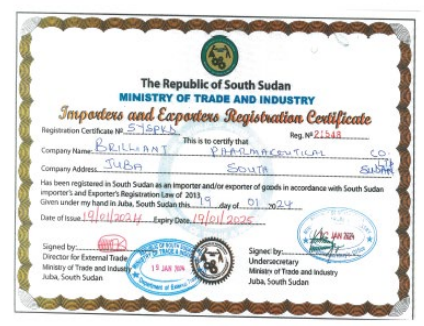 The Republic of South Sudan
MINISTRY OF TRADE AND INDUSTRY
Importers and Exporters Registration Certificate
Registration Certificate Nº SYSPKD Reg. Nº 21548
This is to certify that
Company Name: BRILLIANT PHARMACEUTICAL CO. LTD
Company Address JUBA SOUTH SUDAN
Has been registered in South Sudan as an importer and/or exporter of goods in accordance with South Sudan
importer's and Exporter's Registration Law of 2013
Given under my hand in Juba, South Sudan this 19 day of 01 2024
Date of Issue 19/01/2024 Expiry Date 19/01/2025
Signed by:
Director for External Trade
Ministry of Trade and Industry
Juba, South Sudan
15 JAN 2024
Signed by:
Undersecretary
Ministry of Trade and Industry
Juba, South Sudan
JAN 2024